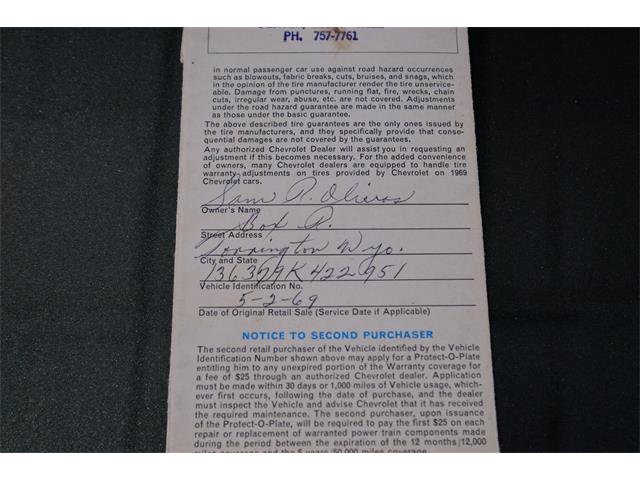 PH. 757-7761
in normal passenger car use against road hazard occurrences
such as blowouts, fabric breaks, cuts, bruises, and snags, which
in the opinion of the tire manufacturer render the tire unservice-
able. Damage from punctures, running flat, fire, wrecks, chain
cuts, irregular wear, abuse, etc. are not covered. Adjustments
under the road hazard guarantee are made in the same manner
as those under the basic guarantee.
The above described tire guarantees are the only ones issued by
the tire manufacturers, and they specifically provide that conse-
quential damages are not covered by the guarantees.
Any authorized Chevrolet Dealer will assist you in requesting an
adjustment if this becomes necessary. For the added convenience
of owners, many Chevrolet dealers are equipped to handle tire
warranty adjustments on tires provided by Chevrolet on 1969
Chevrolet cars.
Sam R. Oliveros
Owner's Name
Box R.
Street Address
Torrington Wyo.
City and State
136379K422951
Vehicle Identification No.
5-2-69
Date of Original Retail Sale (Service Date if Applicable)
NOTICE TO SECOND PURCHASER
The second retail purchaser of the Vehicle identified by the Vehicle
Identification Number shown above may apply for a Protect-O-Plate
entitling him to any unexpired portion of the Warranty coverage for
a fee of $25 through an authorized Chevrolet dealer. Application
must be made within 30 days or 1,000 miles of Vehicle usage, which-
ever first occurs, following the date of purchase, and the dealer
must inspect the Vehicle and advise Chevrolet that it has received
the required maintenance. The second purchaser, upon issuance
of the Protect-O-Plate, will be required to pay the first $25 on each
repair or replacement of warranted power train components made
during the period between the expiration of the 12 months/12,000
miles coverage and the 5 years/50,000 miles coverage.